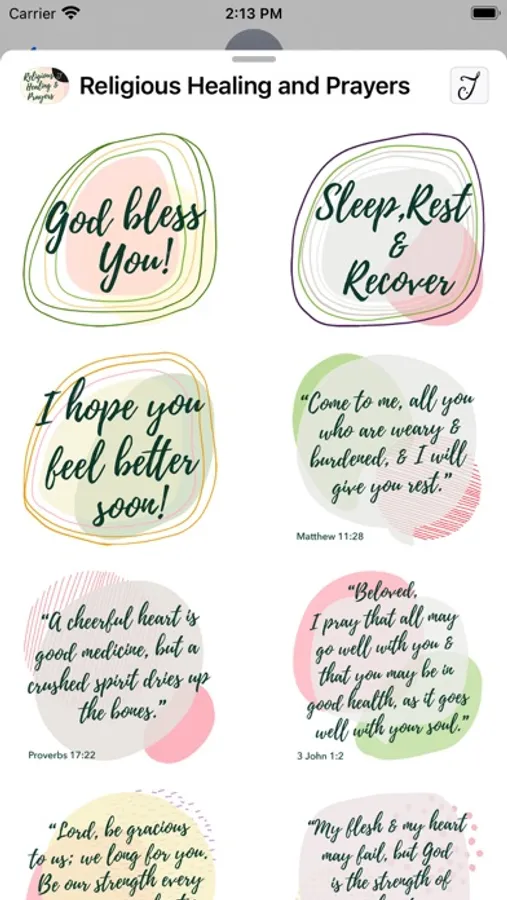 Carrier 2:13 PM
Religious Healing & Prayers
Religious Healing and Prayers
God bless
You!
Sleep,Rest
&
Recover
I hope you
feel better
soon!
“Come to me, all you
who are weary &
burdened, & I will
give you rest.”
Matthew 11:28
“A cheerful heart is
good medicine, but a
crushed spirit dries up
the bones.”
Proverbs 17:22
“Beloved,
I pray that all may
go well with you &
that you may be in
good health, as it goes
well with your soul.”
3 John 1:2
“Lord, be gracious
to us; we long for you.
Be our strength every
“My flesh & my heart
may fail, but God
is the strength of